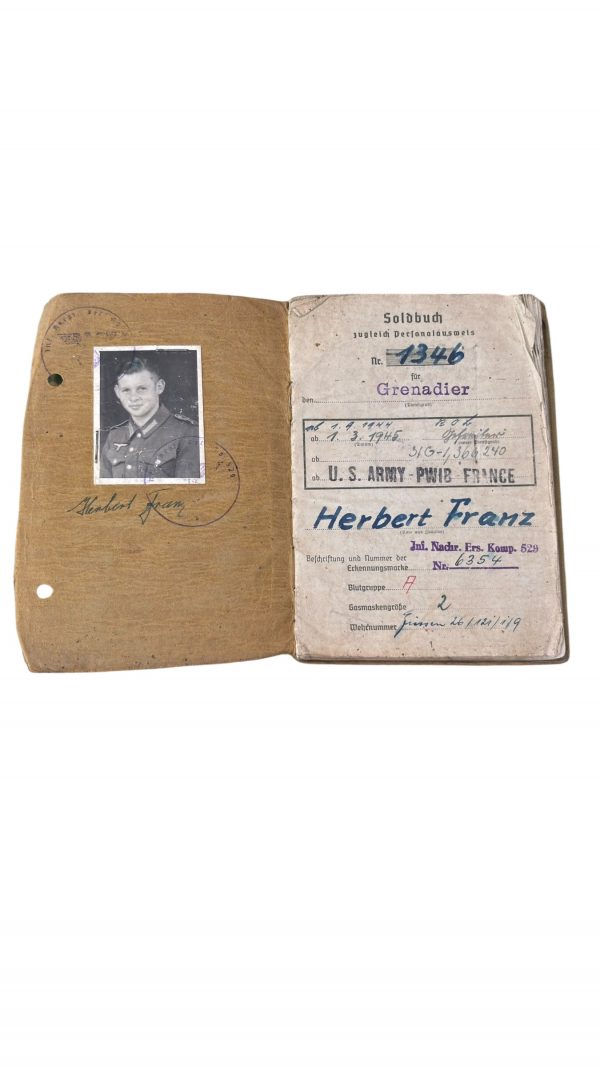 Herbert Franz
Soldbuch
zugleich Personalausweis
Nr. 1346
für
den Grenadier
(Dienstgrad)
ab 1.9.1944
ab 1.3.1945
(Datum)
ab 31G-1,366,240
ab U. S. ARMY - PWIB - FRANCE
Herbert Franz
(Vor- und Zuname)
Inf. Nachr. Ers. Komp. 529
Beschriftung und Nummer der
Erkennungsmarke Nr. 6354
Blutgruppe A
Gasmaskengröße 2
Wehrnummer Giessen 26/121/1/9
1